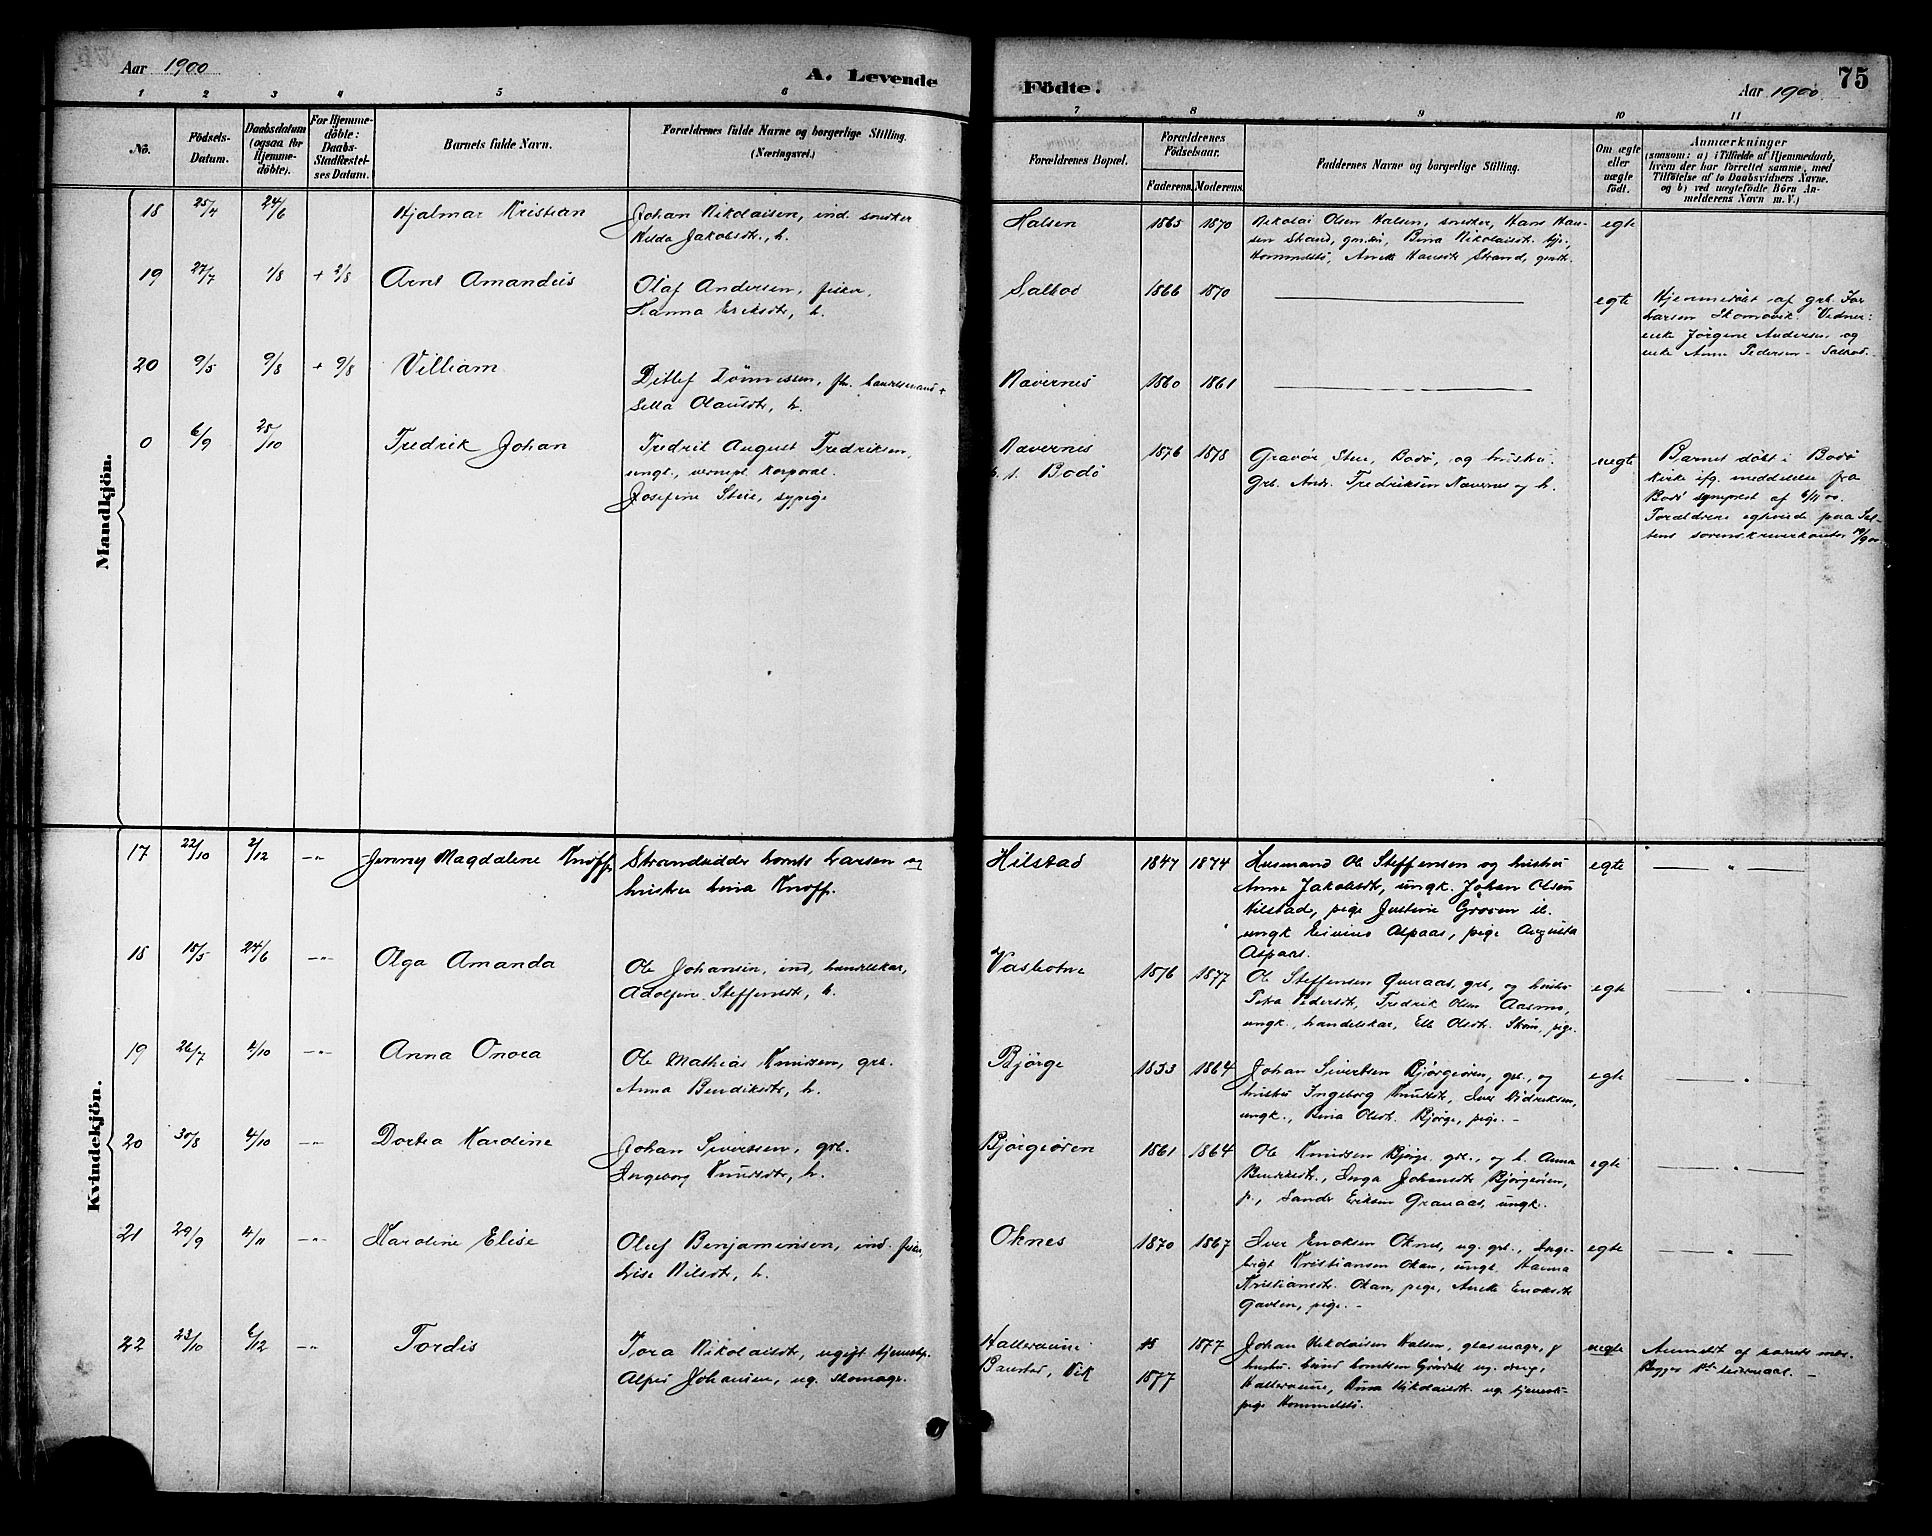 Aar 1900
A. Levende
Födte.
Aar 1900
75
1 2 3 4 5 6 7 8 9 10 11
No.
Födsels-
Datum.
Daabsdatum
(ogsaa for
Hjemme-
döbte).
For Hjemme-
döbte:
Daabs-
Stadfæstel-
ses Datum.
Barnets fulde Navn.
Forældrenes fulde Navne og borgerlige Stilling.
(Næringsvei.)
Forældrenes Bopæl.
Forældrenes
Födselsaar.
Faderens. Moderens.
Faddernes Navne og borgerlige Stilling.
Om ægte
eller
uægte
födt.
Anmærkninger
(saasom: a) i Tilfælde af Hjemmedaab,
hvem der har forrettet samme, med
Tilföielse af to Daabsvidners Navne,
og b) ved uægtefödte Börn An-
melderens Navn m. V.)
Mandkjön.
18 25/4 24/6 Hjalmar Kristian
Johan Nikolaisen, ind. snedker
Hilda Jakobsdt., h.
Halsen 1865 1870
Nikolai Olsen Halsen, snedker, Hans Han-
sen Strand, Bina Nikolaisdt.
Hommelstø, Anette Hansdt. Strand,
egte
19 27/7 1/8 + 2/8 Arnt Amandus
Olaf Andersen, fisker,
Hanna Eriksdt., h.
Salbod 1866 1870
egte
Hjemmedøbt af grb.
Larsen Vidner:
enke Jørgine Andersen og
enke Anne Pedersen - Salbod.
20 9/5 9/8 + 9/8 Villiam
Ditlef Tønnesen, handelsmand
Olausdt., h.
Nævernes 1860 1861
0 6/9 25/10 Fredrik Johan
Fredrik August Fredriksen,
ungk., vernepl. korporal
Josefine Steie, sypige
Nævernes
p. t. Bodø
1876 1878
Gravør Steie, Bodø, og hustru.
Grb. Andr. Fredriksen Nævernes og h.
uegte
Barnet døbt i Bodø
kirke ifg. meddelelse fra
Bodø sogneprest af 6/11 00.
Forældrene egteviede paa Sal-
tens sorenskriverkontor
Kvindekjön.
17 22/10 2/12 -"- Jenny Magdalene Knoff
Strandsidder Lornts Larsen og
hustru Lina Knoff.
Hilstad 1847 1874
Husmand Ole Steffensen og hustru
Anne Jakobsdt., ungk. Johan Olsen
Hilstad, pige Justine Groven
ungk Eivind Aspaas, pige Augusta
Aspaas.
egte
18 15/5 24/6 -"- Olga Amanda
Ole Johansen, ind., handelskar,
Adolfine Steffensdt., h.
Vasbotne 1876 1877
Ole Steffensen grb., og hustru
Petra Pedersdt., Fredrik Olsen Aasmo,
ungk., handelskar, Elle Olsdt. Strøm, pige.
egte
19 26/7 4/10 -"- Anna Onora
Ole Mathias Knudsen, grb.
Anna Bendiksdt., h.
Bjørge 1853 1864
Johan Sivertsen Bjørgeøren, grb., og
hustru Ingeborg Knudsdt., Iver Didriksen,
ungk., Bina Olsdt. Bjørge, pige. -
egte
20 30/8 4/10 -"- Dortea Karoline
Johan Sivertsen, grb.
Ingeborg Knudsdt., h.
Bjørgeøren 1861 1864
Ole Knudsen Bjørge grb., og h. Anna
Bendiksdt., Inga Johansdt Bjørgeøren,
p., Sander Eriksen Granaas, ungk.
egte
21 29/9 4/11 -"- Karoline Elise
Oluf Benjaminsen, ind. fisker,
Lise Nilsdt., h.
Oknes 1870 1867
Iver Enoksen Oknes, ug. grb., Inge-
brigt Kristiansen Okan, ungk. Hanna
Kristiansdt. Okan, pige, Anette Enoksdt.
pige. -
egte
22 23/10 6/12 -"- Tordis
Tora Nikolaisdt, ugift tjenestp.
Johansen, ug. skomagr.
Vik
1877
1877
Johan Nikolaisen Halsen, glasmagr., &
hustru.
Bina Nikolaisdt. ug. tjeneste-
pige Hommelstø.
uegte
Anmeldt af barnets mor.
Begges 1ste leiermaal. -